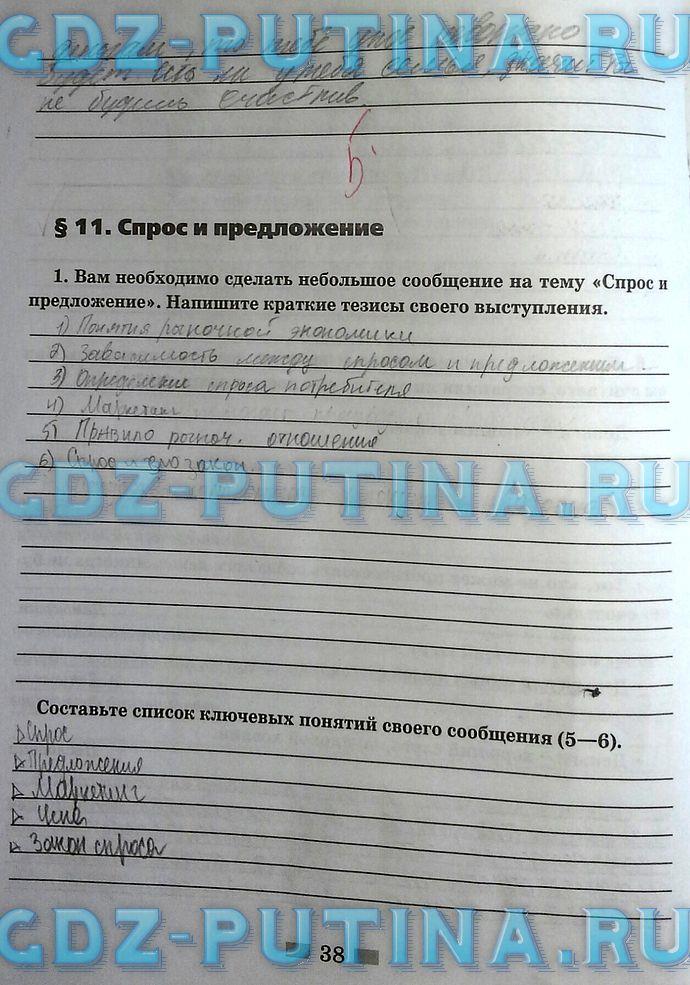 GDZ-PUTINA.RU
не будешь счастлив.
5
§ 11. Спрос и предложение
1. Вам необходимо сделать небольшое сообщение на тему «Спрос и
предложение». Напишите краткие тезисы своего выступления.
1) Понятия рыночной экономики
2) Зависимость между спросом и предложением.
3) Определение спроса потребителя
4) Маркетинг
5) Правило рыноч. отношения
6) Спрос и его закон
GDZ-PUTINA.RU
Составьте список ключевых понятий своего сообщения (5—6).
Спрос
Предложения
Маркетинг
Цена
Закон спроса
GDZ-PUTINA.RU
38